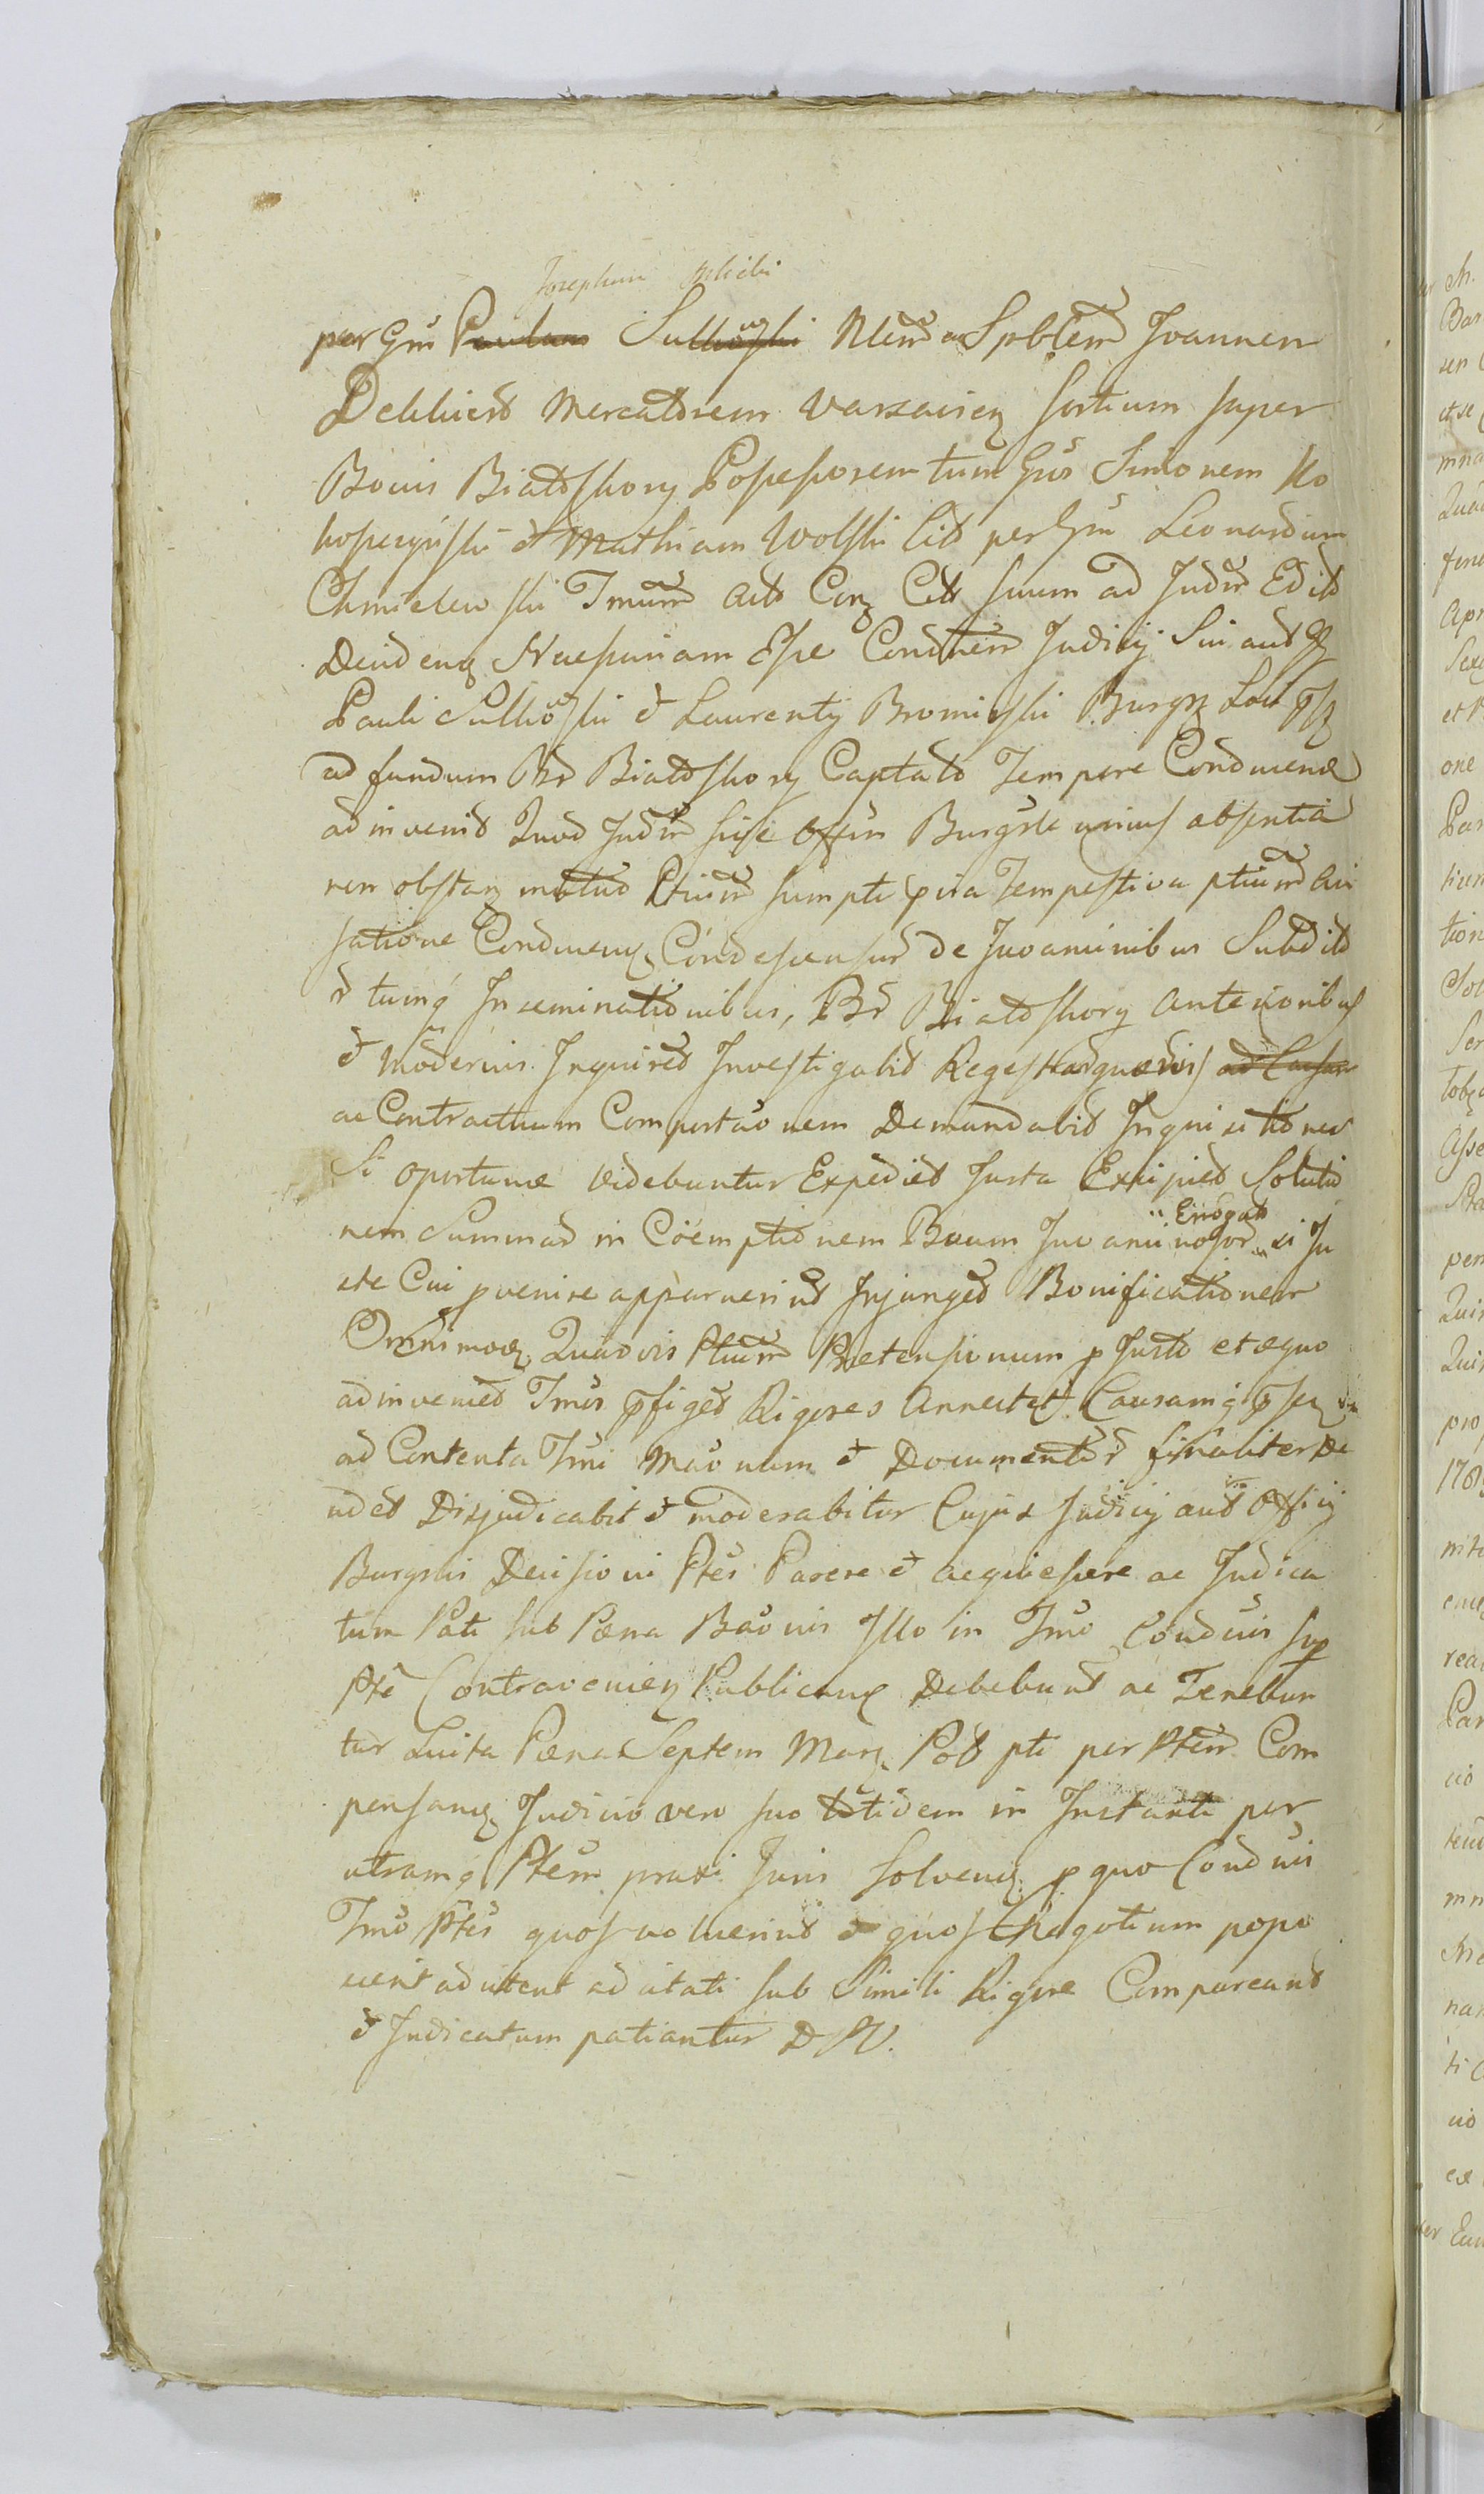 Josephum
per Gm Paulum Sulkowski Nlem ac Spblem Joannem
Dekkiert Mercatorem Varsavien sortium super
Bonis Białośkory Possessorem tum Gnos Simonem Ko
kosczyński et Mathiam Wolski Cit per Gm Leonardum
Chmielewski Tmum Act Con Citt suum ad Judm Edit
Deciden Necessariam Esse Condnem Judicij Sui aut
Pauli Sulkowski et Laurentij Bromirski Burgr
ad fundum Br Białośkory Captato Tempore Condnen
adinvenit Quod Judm sive Offm Burgrle unius absentia
non obstan mutuo Ptium sumpti pvia Tempestiva ptium Avi
satione Condnen Condescensur de Juvaminibus Subdit
et tum Inseminationibus, Br Białośkory anterioribus
et modernis Inquiret Investigabit Regestrorum quorvis ad Causam
ac Contractuum Comportaonem Demandabit Inquisitiones
Si oportunæ videbuntur Expediet Justa Excipiet Solutio
nem Summar in Coemptionem Boum Juvaminosor Erogat si Ju
ste Cui pvenire apparuerint Injunget Bonificationem
Omnimod Quarvis Ptium Prætensionum p Justo et æquo
adinveniet Tmos pfiget Rigores Annectet Causamq
ad Contenta Tmi Maonum et Documentor finaliter De
cidet Disjudicabit et moderabitur Cujus Judicij aut Officij
Burgrlis Decisioni Ptes Parere et acquiescere ac Judica
tum Pati sub Pœna Baonis Illo in Tmo Condnis sup
Pte Contravenien Publican Debebunt ac Tenebun
tur Luita Pœna Septem Mar Pol pti per Ptem Com
pensan Judicio vero suo totidem in Instanti per
utramq Ptem praxi Juris solven p quo Condnis
Tmo Ptes quos voluerint et quos Negotium popo
cerit adcitent adcitati sub Simili Rigore Compareant
et Judicatum patiantur